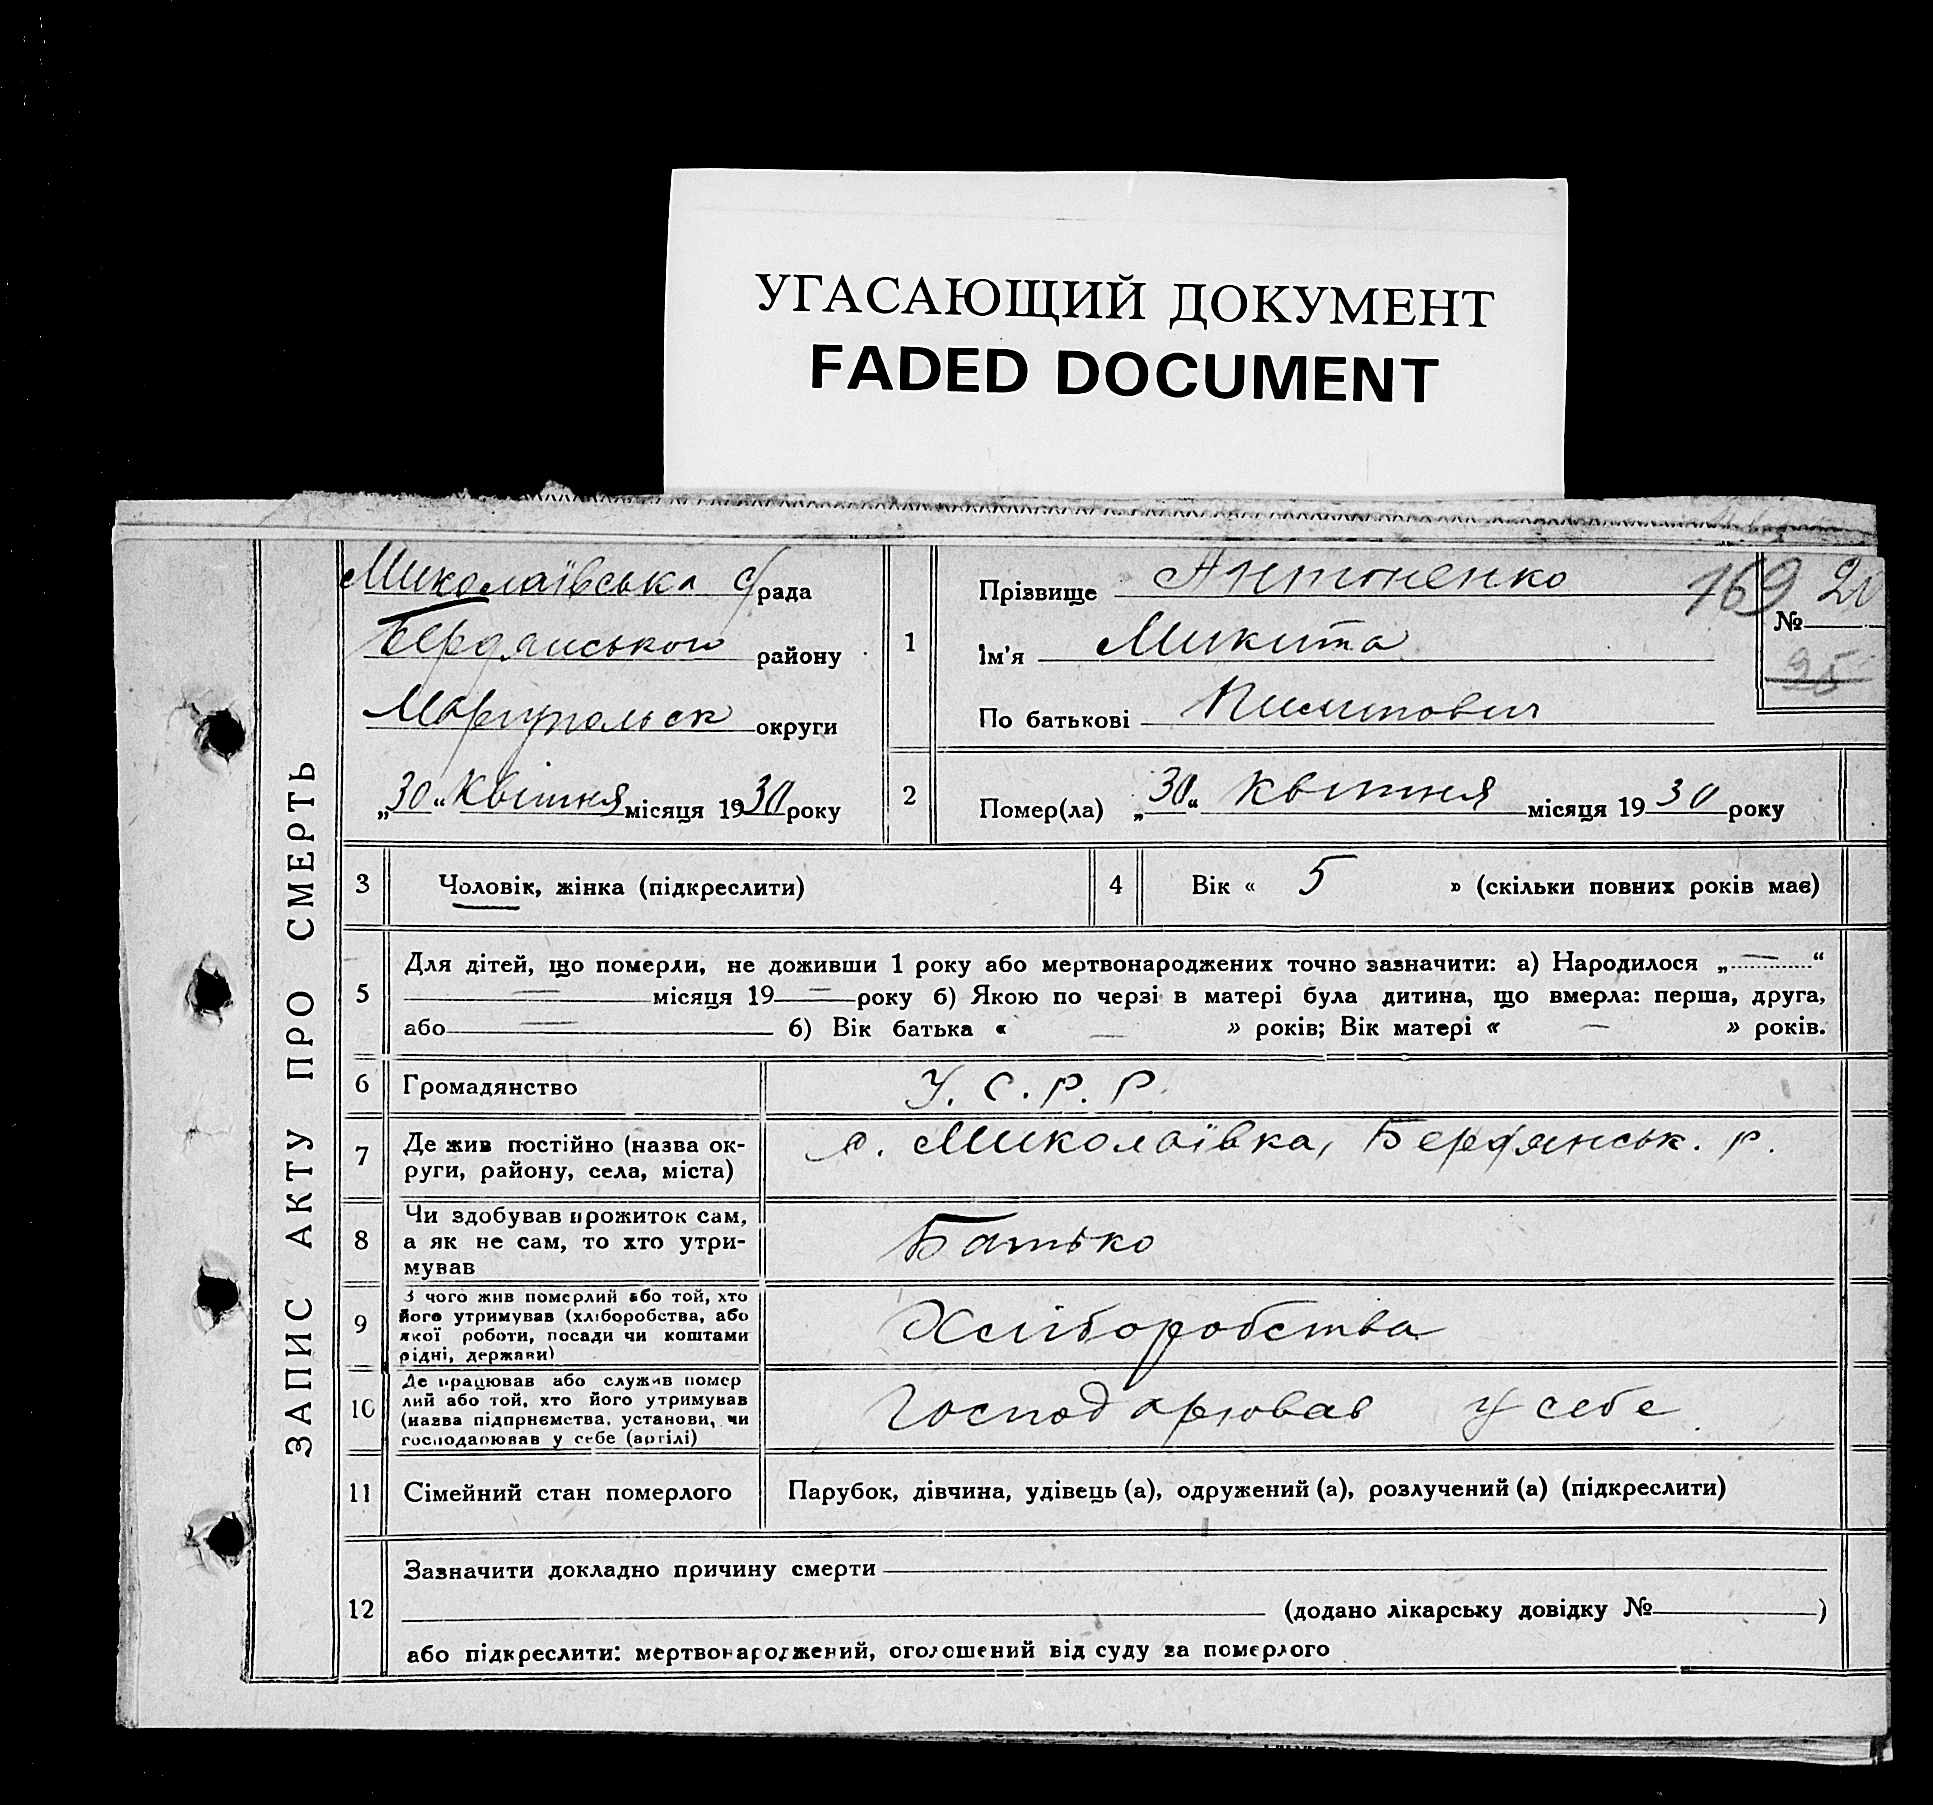 УГАСАЮЩИЙ ДОКУМЕНТ
FADED DOCUMENT
ЗАПИС АКТУ ПРО СМЕРТЬ
Миколаївська с/рада
Бердянського району
Маріупольськ округи
„30“ Квітня місяця 1930 року
1
Прізвище Антоненко
Ім'я Микита
По батькові
169
№ 20
25
2
Помер(ла) „30“ Квітня місяця 1930 року
3 Чоловік, жінка (підкреслити)
4 Вік « 5 » (скільки повних років має)
5
Для дітей, що померли, не доживши 1 року або мертвонароджених точно зазначити: а) Народилося „—“
— місяця 19 — року б) Якою по черзі в матері була дитина, що вмерла: перша, друга,
або — б) Вік батька « — » років; Вік матері « — » років.
6 Громадянство У.С.Р.Р.
7
Де жив постійно (назва ок-
руги, району, села, міста)
с. Миколаївка, Бердянськ. р.
8
Чи здобував прожиток сам,
а як не сам, то хто утри-
мував
Батько
9
З чого жив померлий або той, хто
його утримував (хліборобства, або
якої роботи, посади чи коштами
рідні, держави)
Хліборобства
10
Де працював або служив помер
лий або той, хто його утримував
(назва підпрнємства, установи, чи
господарював у себе (артілі)
Господарював у себе
11 Сімейний стан померлого Парубок, дівчина, удівець (а), одружений (а), розлучений (а) (підкреслити)
12
Зазначити докладно причину смерти
(додано лікарську довідку № )
або підкреслити: мертвонароджений, оголошений від суду за померлого